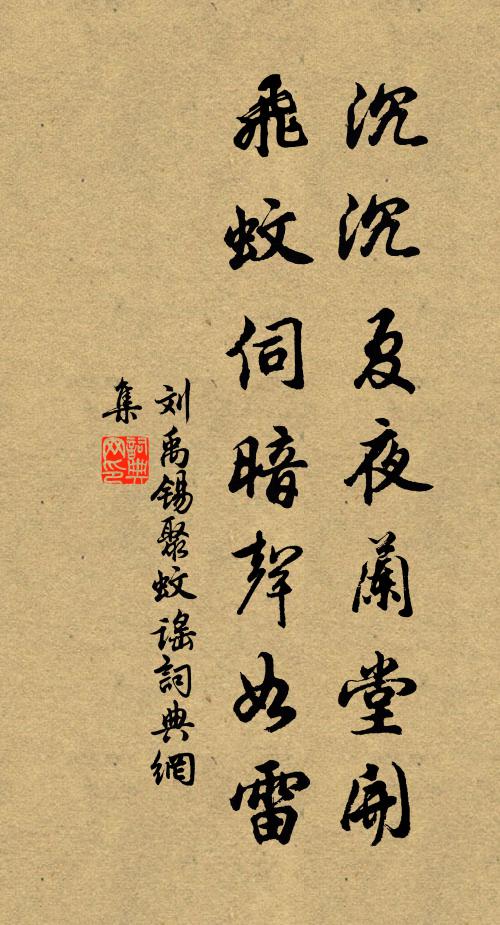 沉沉夏夜蘭堂開
飛蚊伺暗聲如雷
刘禹锡聚蚊謠詞典網
集
詞典网印